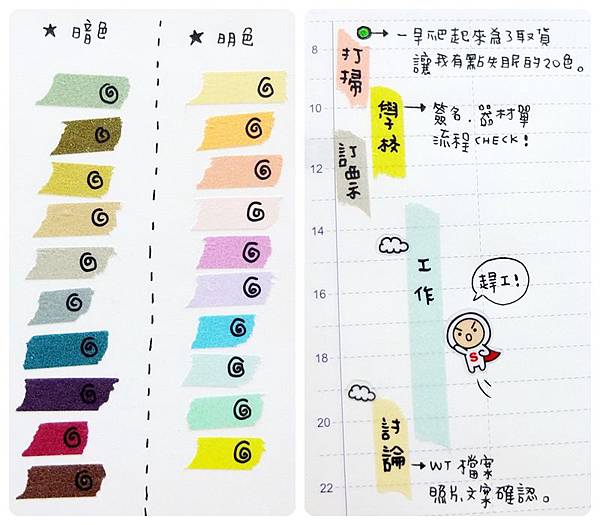 ★ 暗色
★ 明色
8
→ 一早爬起來為了取貨
讓我有點失眠的20色。
打掃
10
學校
→ 簽名.器材單
流程CHECK!
12
訂票
14
工作
16
趕工!
S
18
20
討論
→ WT 檔案
照片文案確認。
22